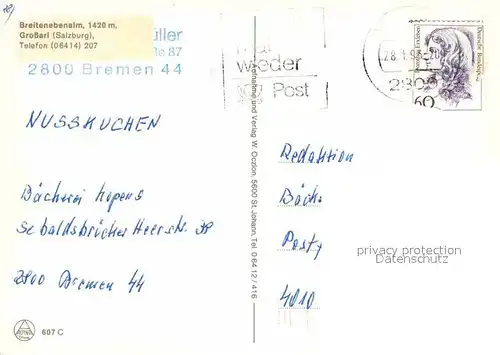 Breitenebenalm, 1420 m,
Großarl (Salzburg),
Telefon (06414) 207
üller
ße 87
2800 Bremen 44
wieder
Post
28.1.9
280
Deutsche Bundespost
60
NUSSKUCHEN
Bäckerei Kopens
Sebaldsbrücker Heerstr. 38
2800 Bremen 44
Redaktion
Bäck
Party
4010
Aufnahme und Verlag W. Oczlon, 5600 St. Johann, Tel. 0 64 12 / 416
607 C
privacy protection
Datenschutz